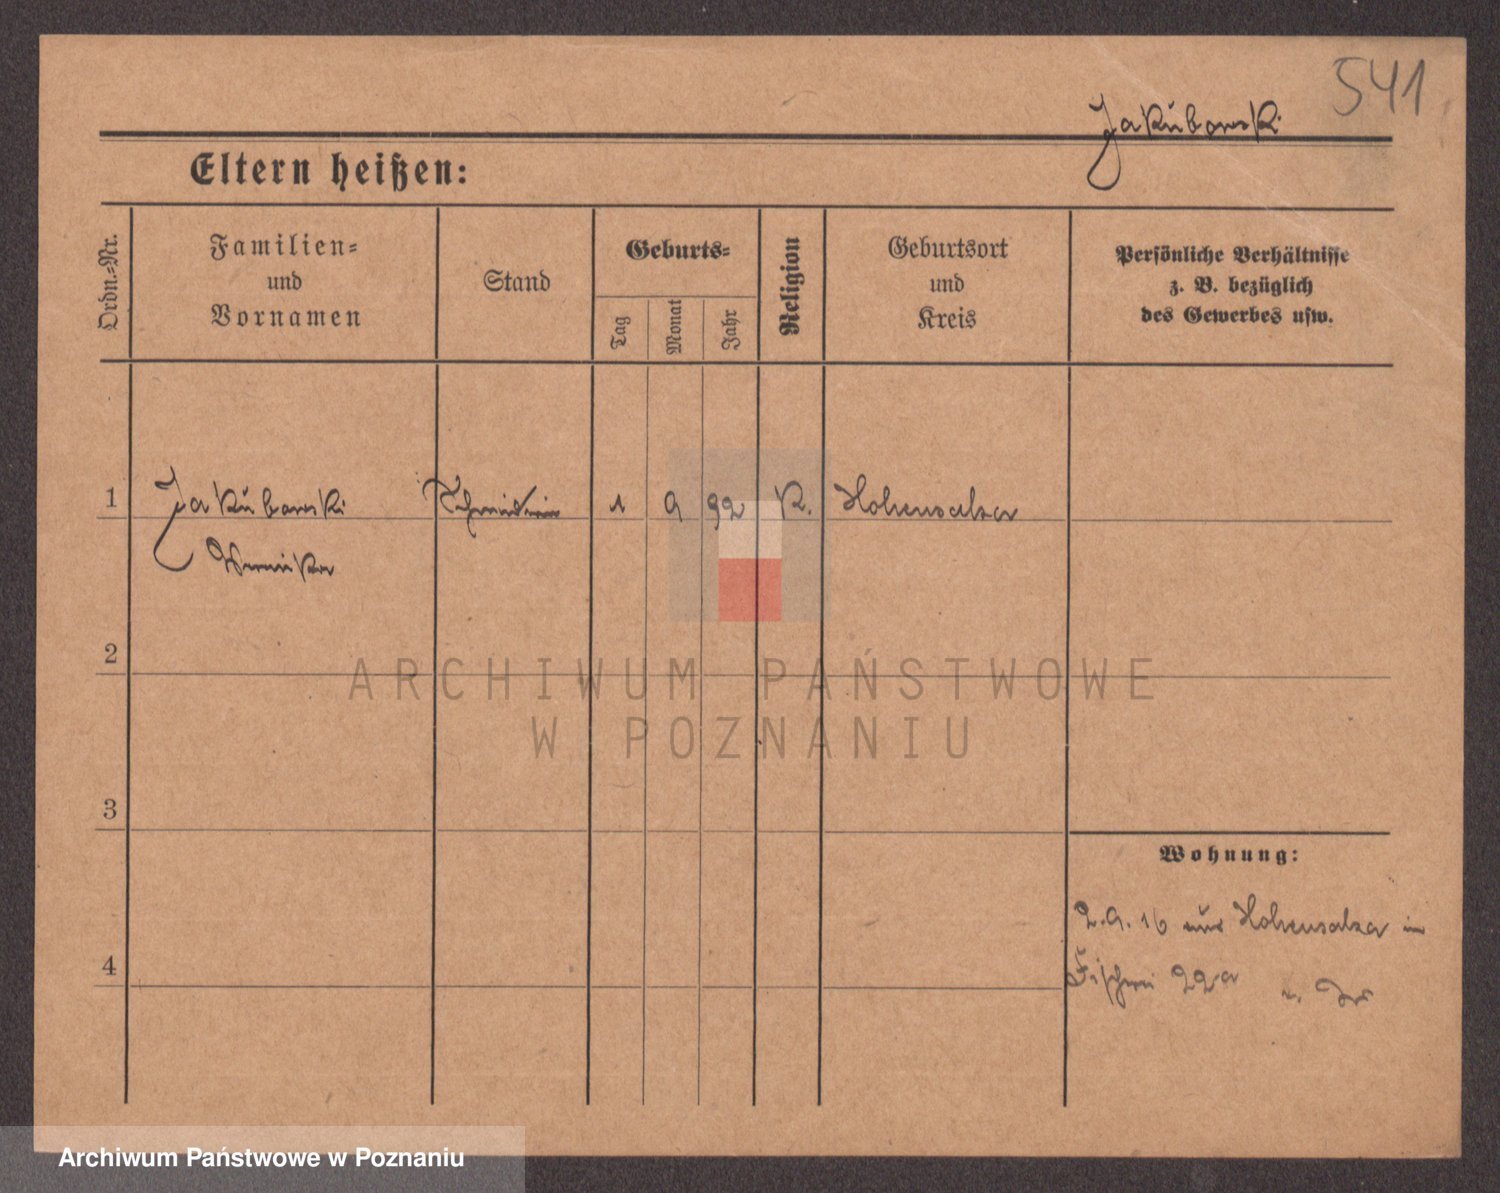 541
Jakubowski
Eltern heißen:
Ordn.-Nr.
Familien-
und
Vornamen
Stand
Geburts-
Tag
Monat
Jahr
Religion
Geburtsort
und
Kreis
Persönliche Verhältnisse
z. B. bezüglich
des Gewerbes usw.
1
Jakubowski
1 9 92 K. Hohensalza
2
3
4
ARCHIWUM PAŃSTWOWE
W POZNANIU
Wohnung:
2.9.16 aus Hohensalza in
Fischerei 22a
Archiwum Państwowe w Poznaniu